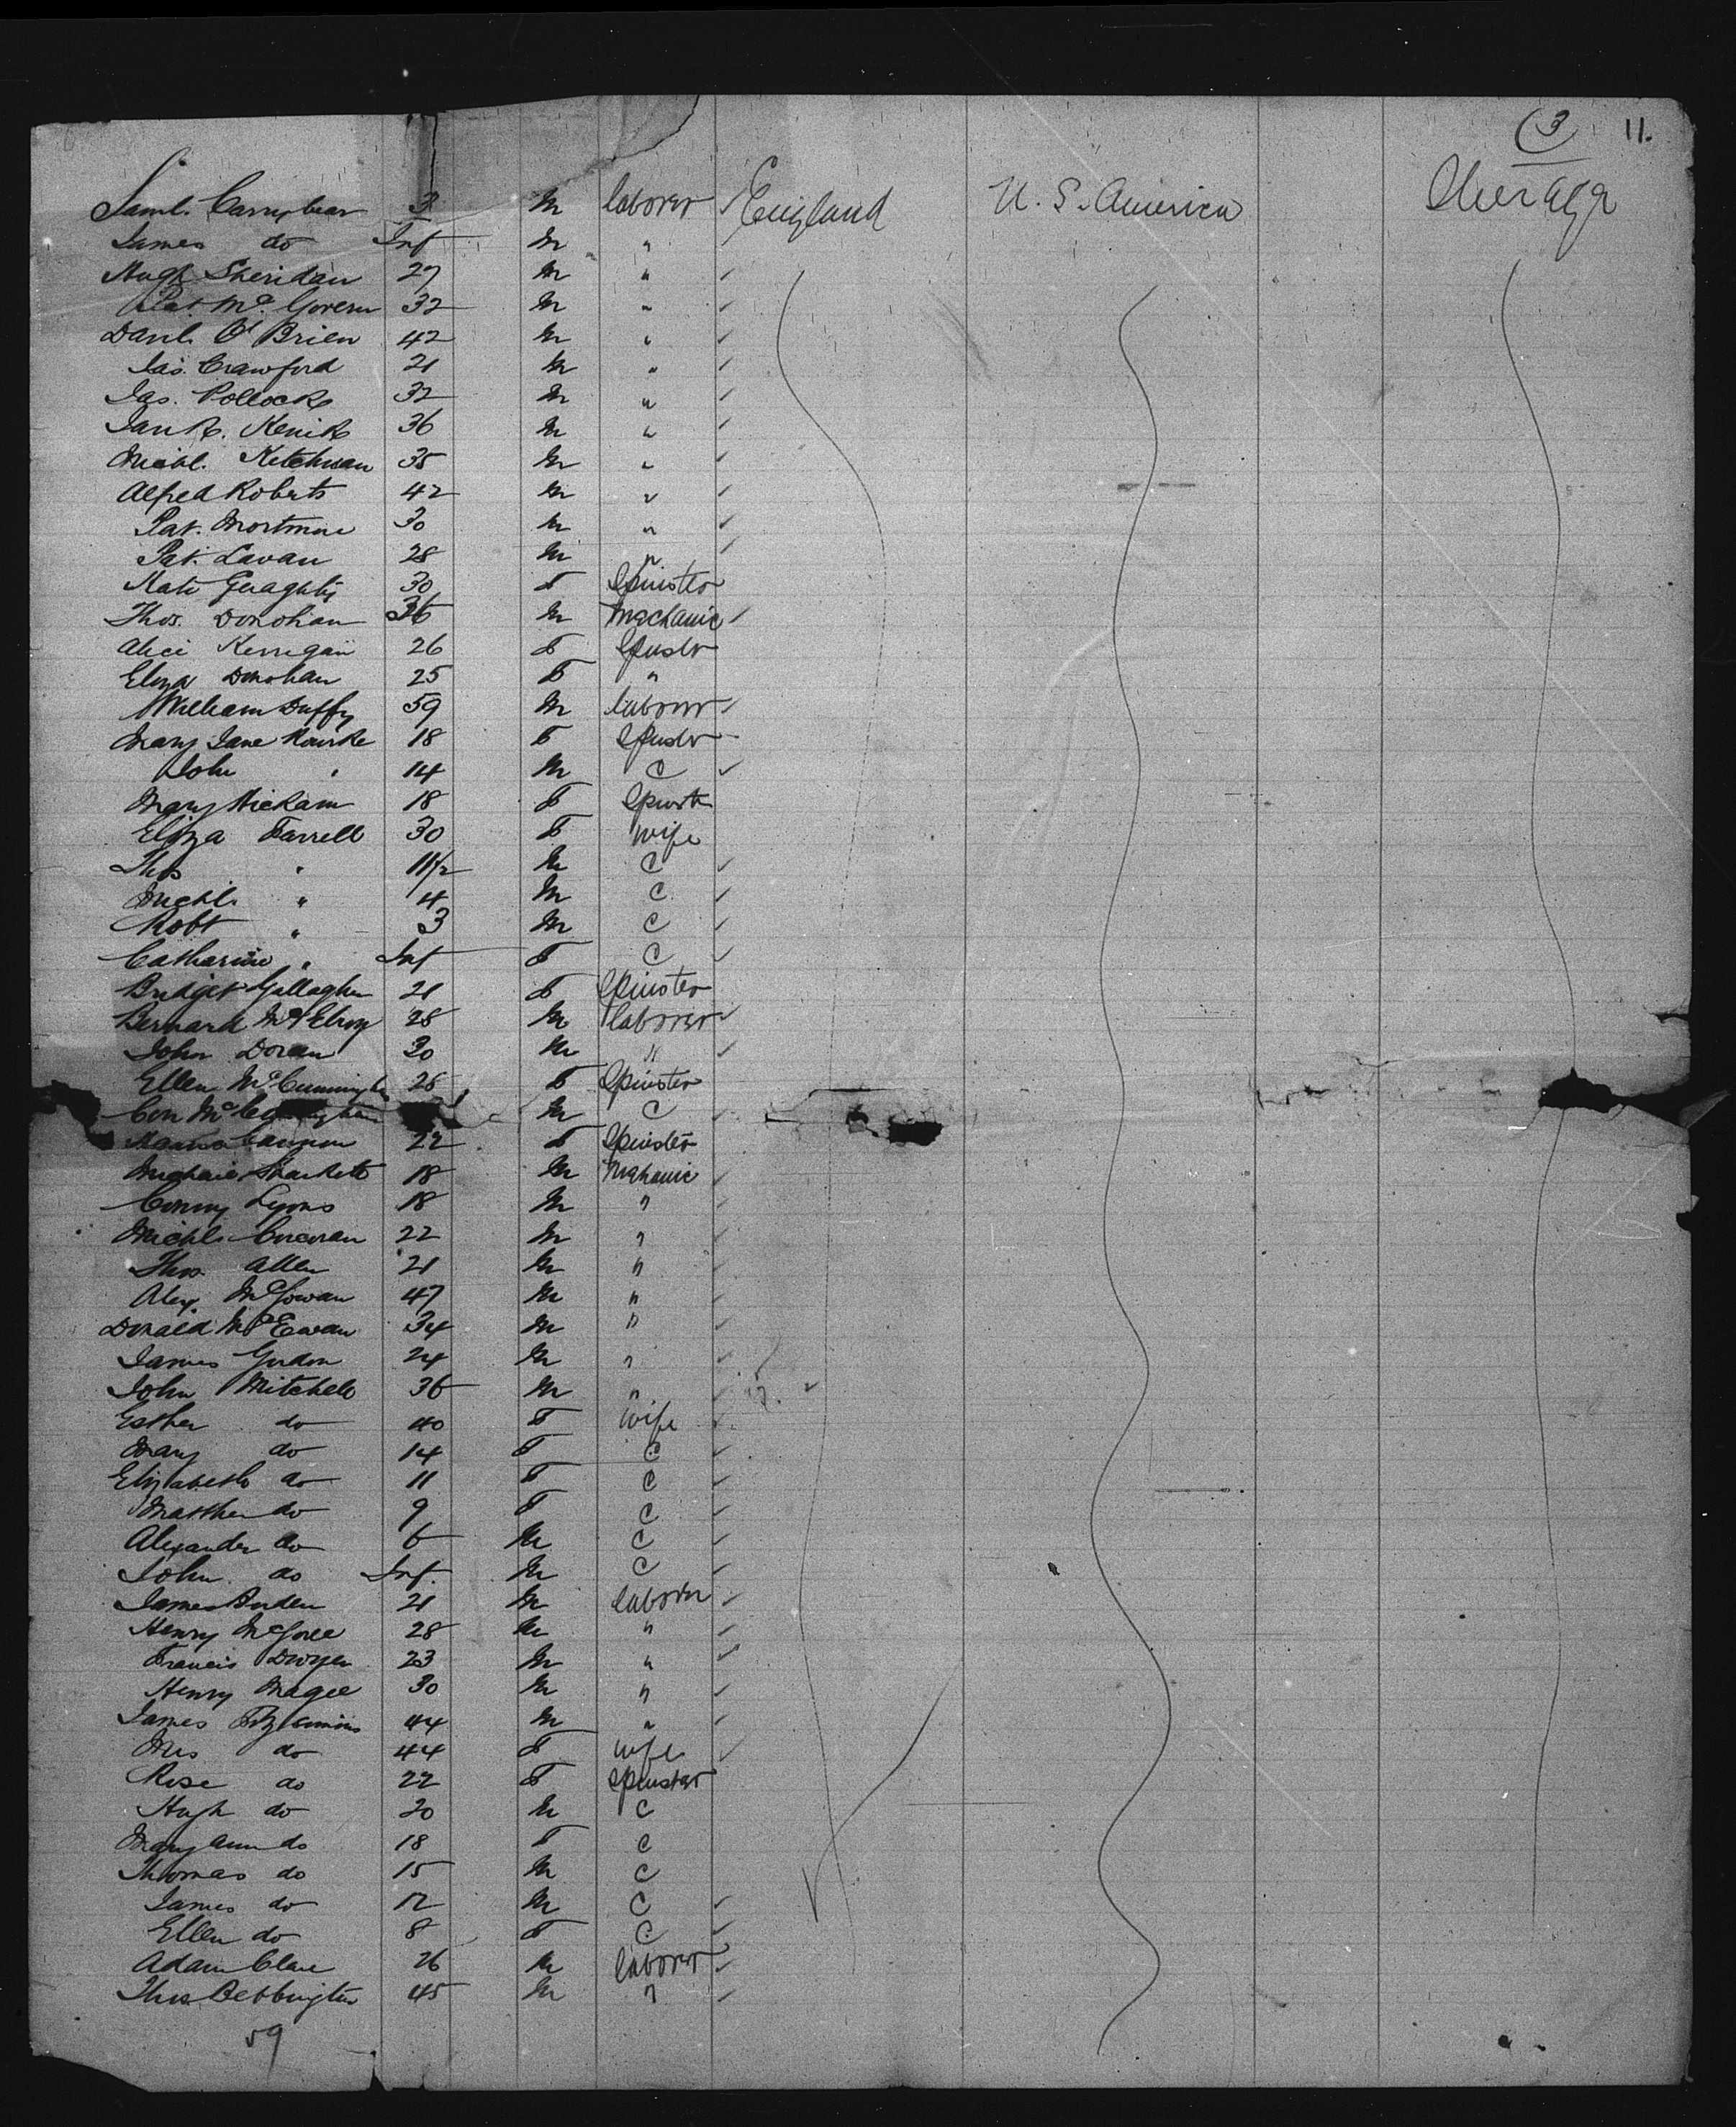 (3) 11.
Saml. Carrybear 3 M laborer England U. S. America Steerage
James do Inf M "
Hugh Sheridan 27 M "
Pat. McGovern 32 M "
Danl. O'Brien 42 M "
Jas. Crawford 21 M "
Jas. Pollock 32 M "
36 M "
Michl. Ketchum 35 M "
Alfred Roberts 42 M "
Pat. Mortimer 30 M "
Pat. Lavan 28 M "
Kate Geraghty 30 F Spinster
Thos. Donohan 36 M Mechanic
Alice Kerrigan 26 F Spinster
Eliza Donohan 25 F "
William Duffy 59 M laborer
Mary Jane Rourke 18 F Spinster
John " 14 M C
Mary Hickam 18 F Spinster
Eliza Farrell 30 F Wife
Thos " 11½ M C
Michl. " 4 M C
Robt " 3 M C
Catharine " Inf F C
Bridget Gallagher 21 F Spinster
Bernard McElroy 28 M laborer
John Doran 30 M "
Ellen McCunningha 25 F Spinster
Con M C
Cannon 22 F Spinster
18 M Mechanic
Conny Lyons 18 M "
Michl. Corcoran 22 M "
Thos. Allen 21 M "
Alex. McGowan 47 M "
Donald McEwan 34 M "
James Gordon 24 M "
John Mitchell 36 M "
Esther do 40 F Wife
Mary do 14 F C
Elizabeth do 11 F C
Matthew do 9 F C
Alexander do 6 M C
John do Inf. M C
James 21 M laborer
Henry 28 M "
Francis Dwyer 23 M "
Henry Magee 30 M "
James Fitzsimins 44 M "
Mrs do 44 F Wife
Rose do 22 F Spinster
Hugh do 20 M C
Mary Ann do 18 F C
Thomas do 15 M C
James do 12 M C
Ellen do 8 F C
Adam Clare 26 M laborer
Thos. Bebbington 45 M "
59